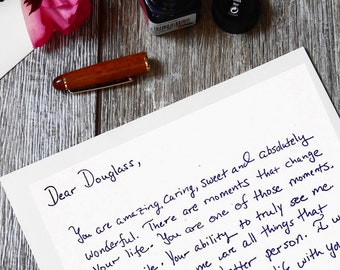 Dear Douglass,
You are amazing, caring, sweet and absolutely
wonderful. There are moments that change
your life. You are one of those moments.
life. Your ability to truly see me
me are all things that
better person. I w
life with yo